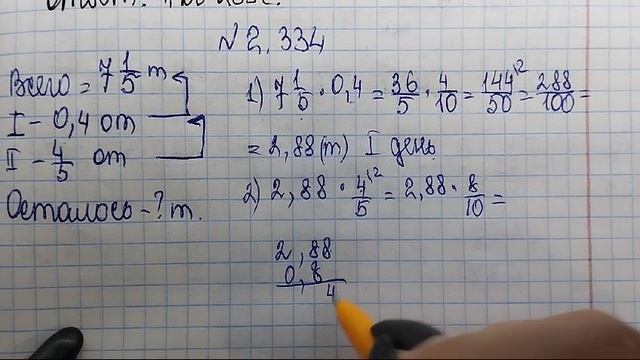 № 2.334
Всего = 7 1/5 т
I - 0,4 от
II - 4/5 от
Осталось - ? т.
1) 7 1/5 · 0,4 = 36/5 · 4/10 = 144/50 ^12 = 288/100 =
= 2,88 (т) I день
2) 2,88 · 4/5 ^12 = 2,88 · 8/10 =
2,88
0,8
4